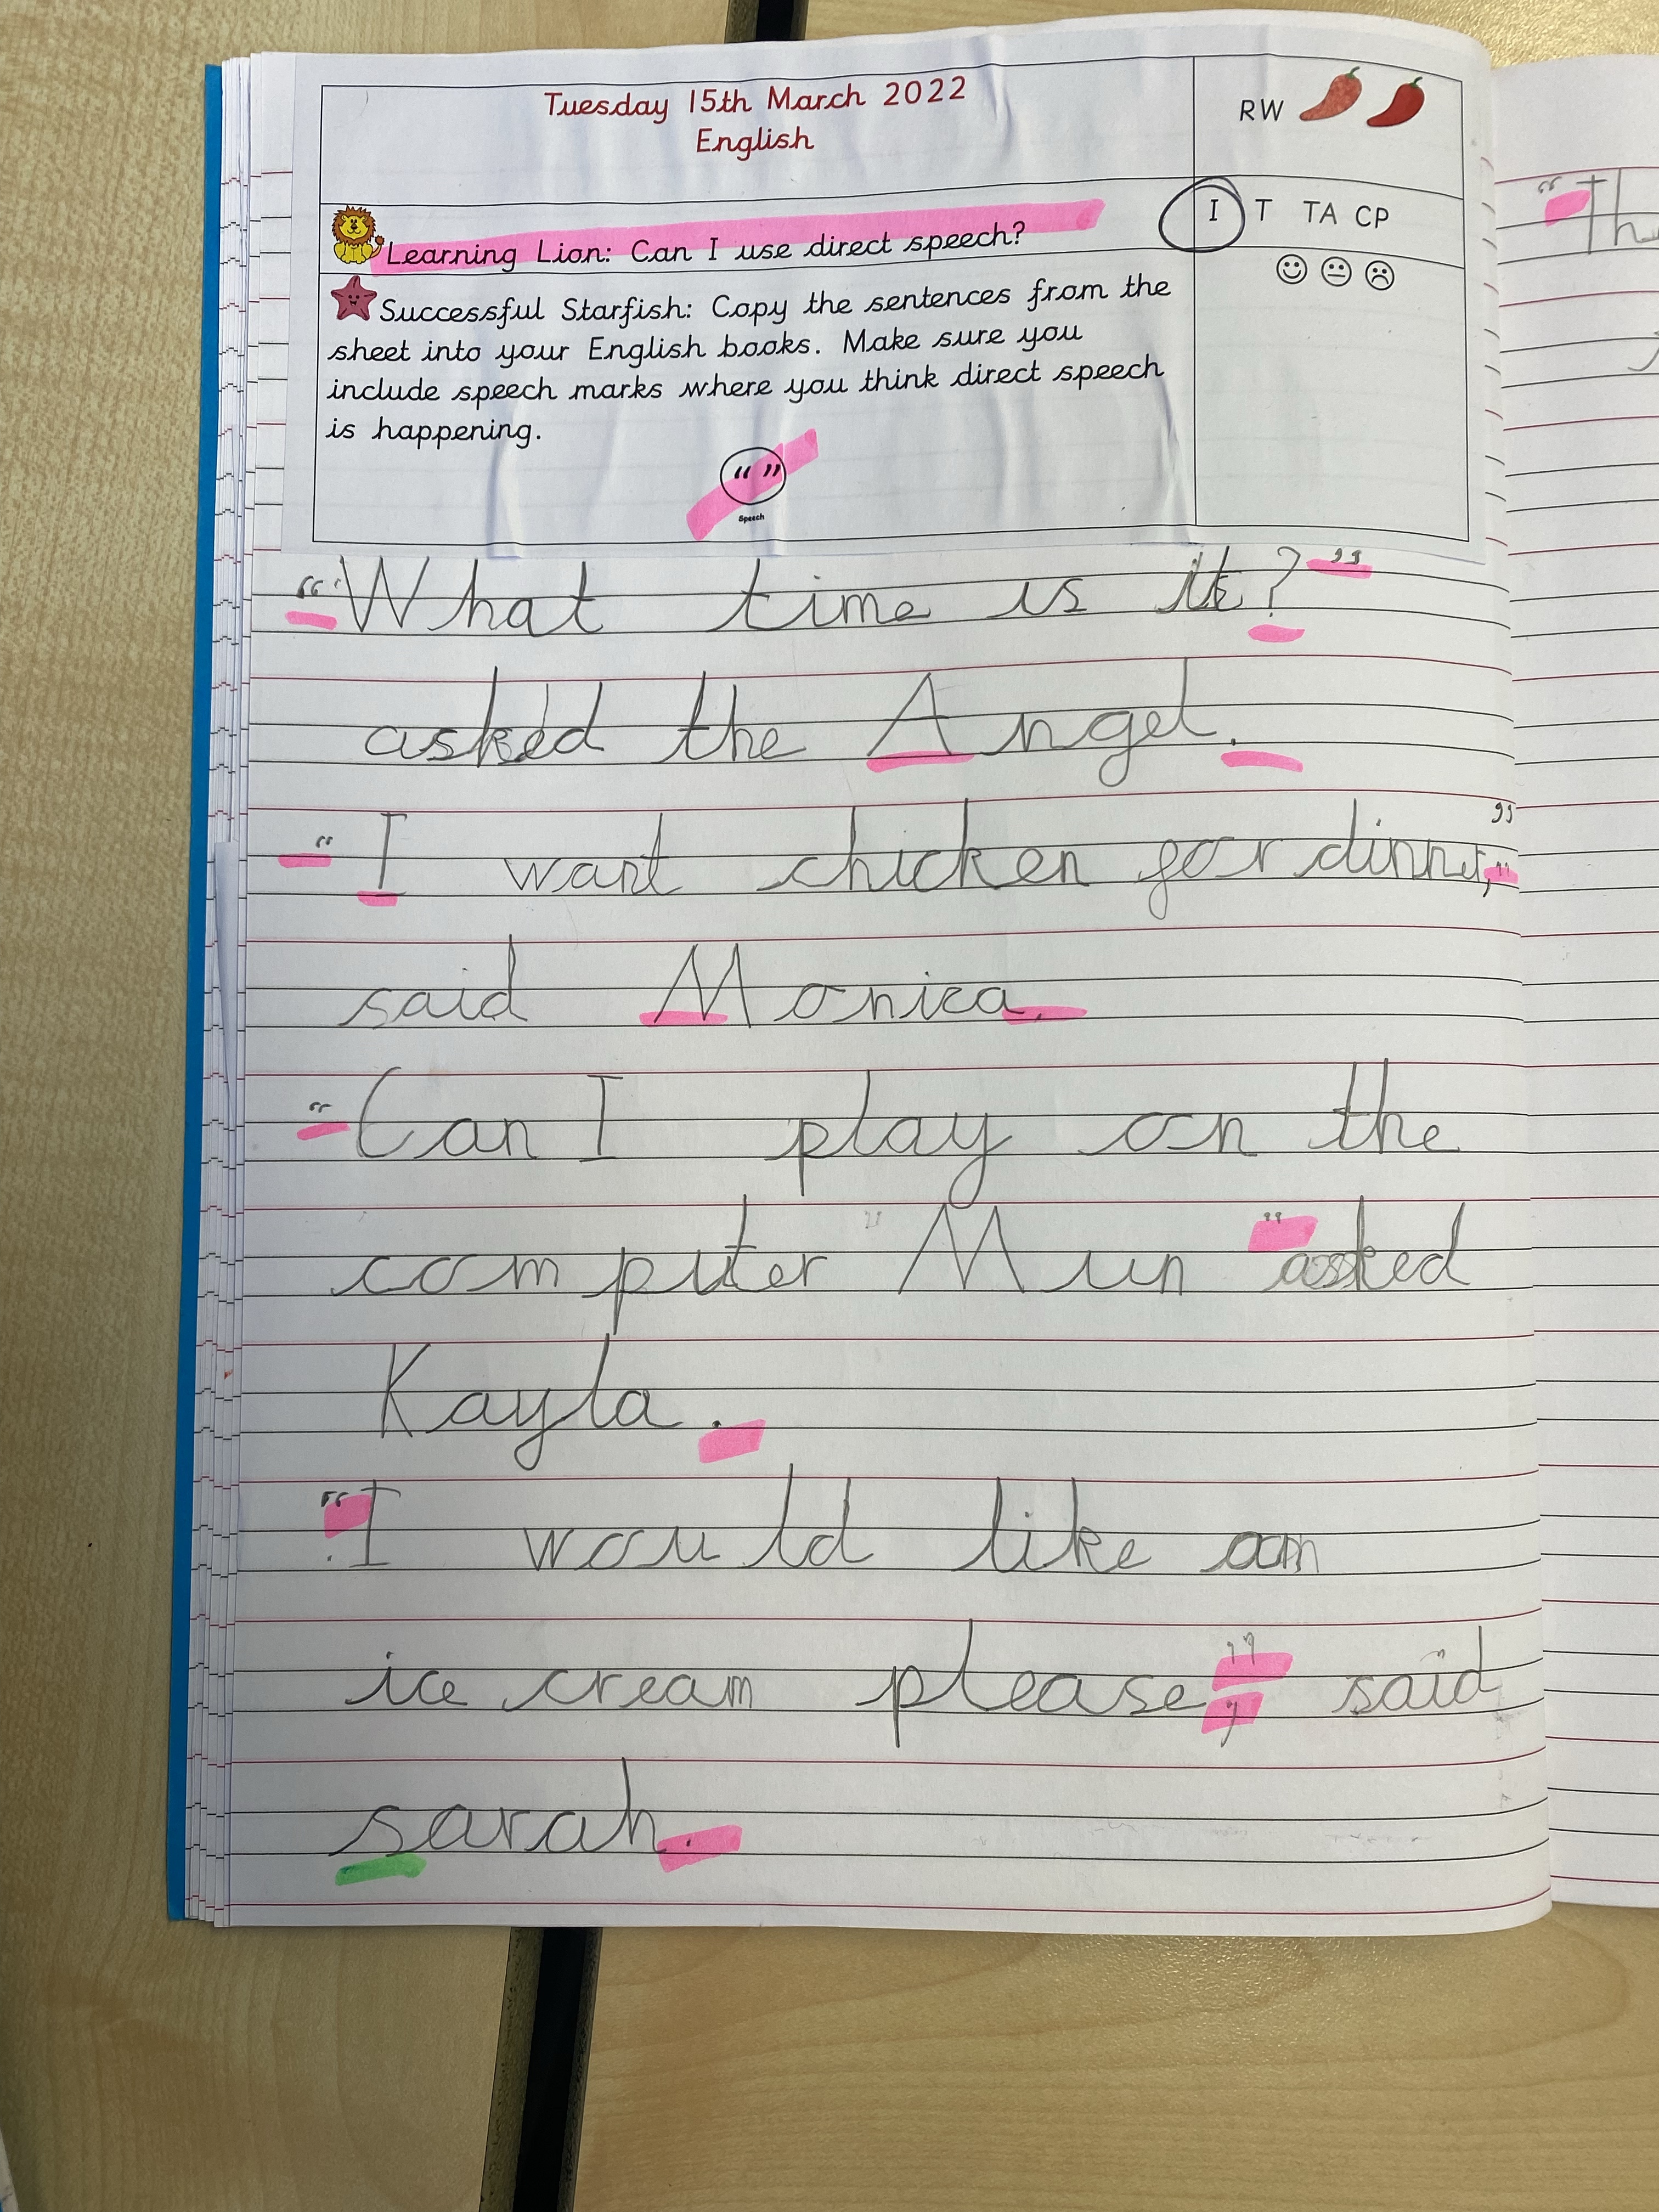 Tuesday 15th March 2022
English
RW
I T TA CP
Learning Lion: Can I use direct speech?
Successful Starfish: Copy the sentences from the
sheet into your English books. Make sure you
include speech marks where you think direct speech
is happening.
“ ”
Speech
“What time is it?”
asked the Angel.
“I want chicken for dinner,”
said Monica.
“Can I play on the
computer Mun” asked
Kayla.
“I would like an
ice cream please,” said
sarah.
“Th